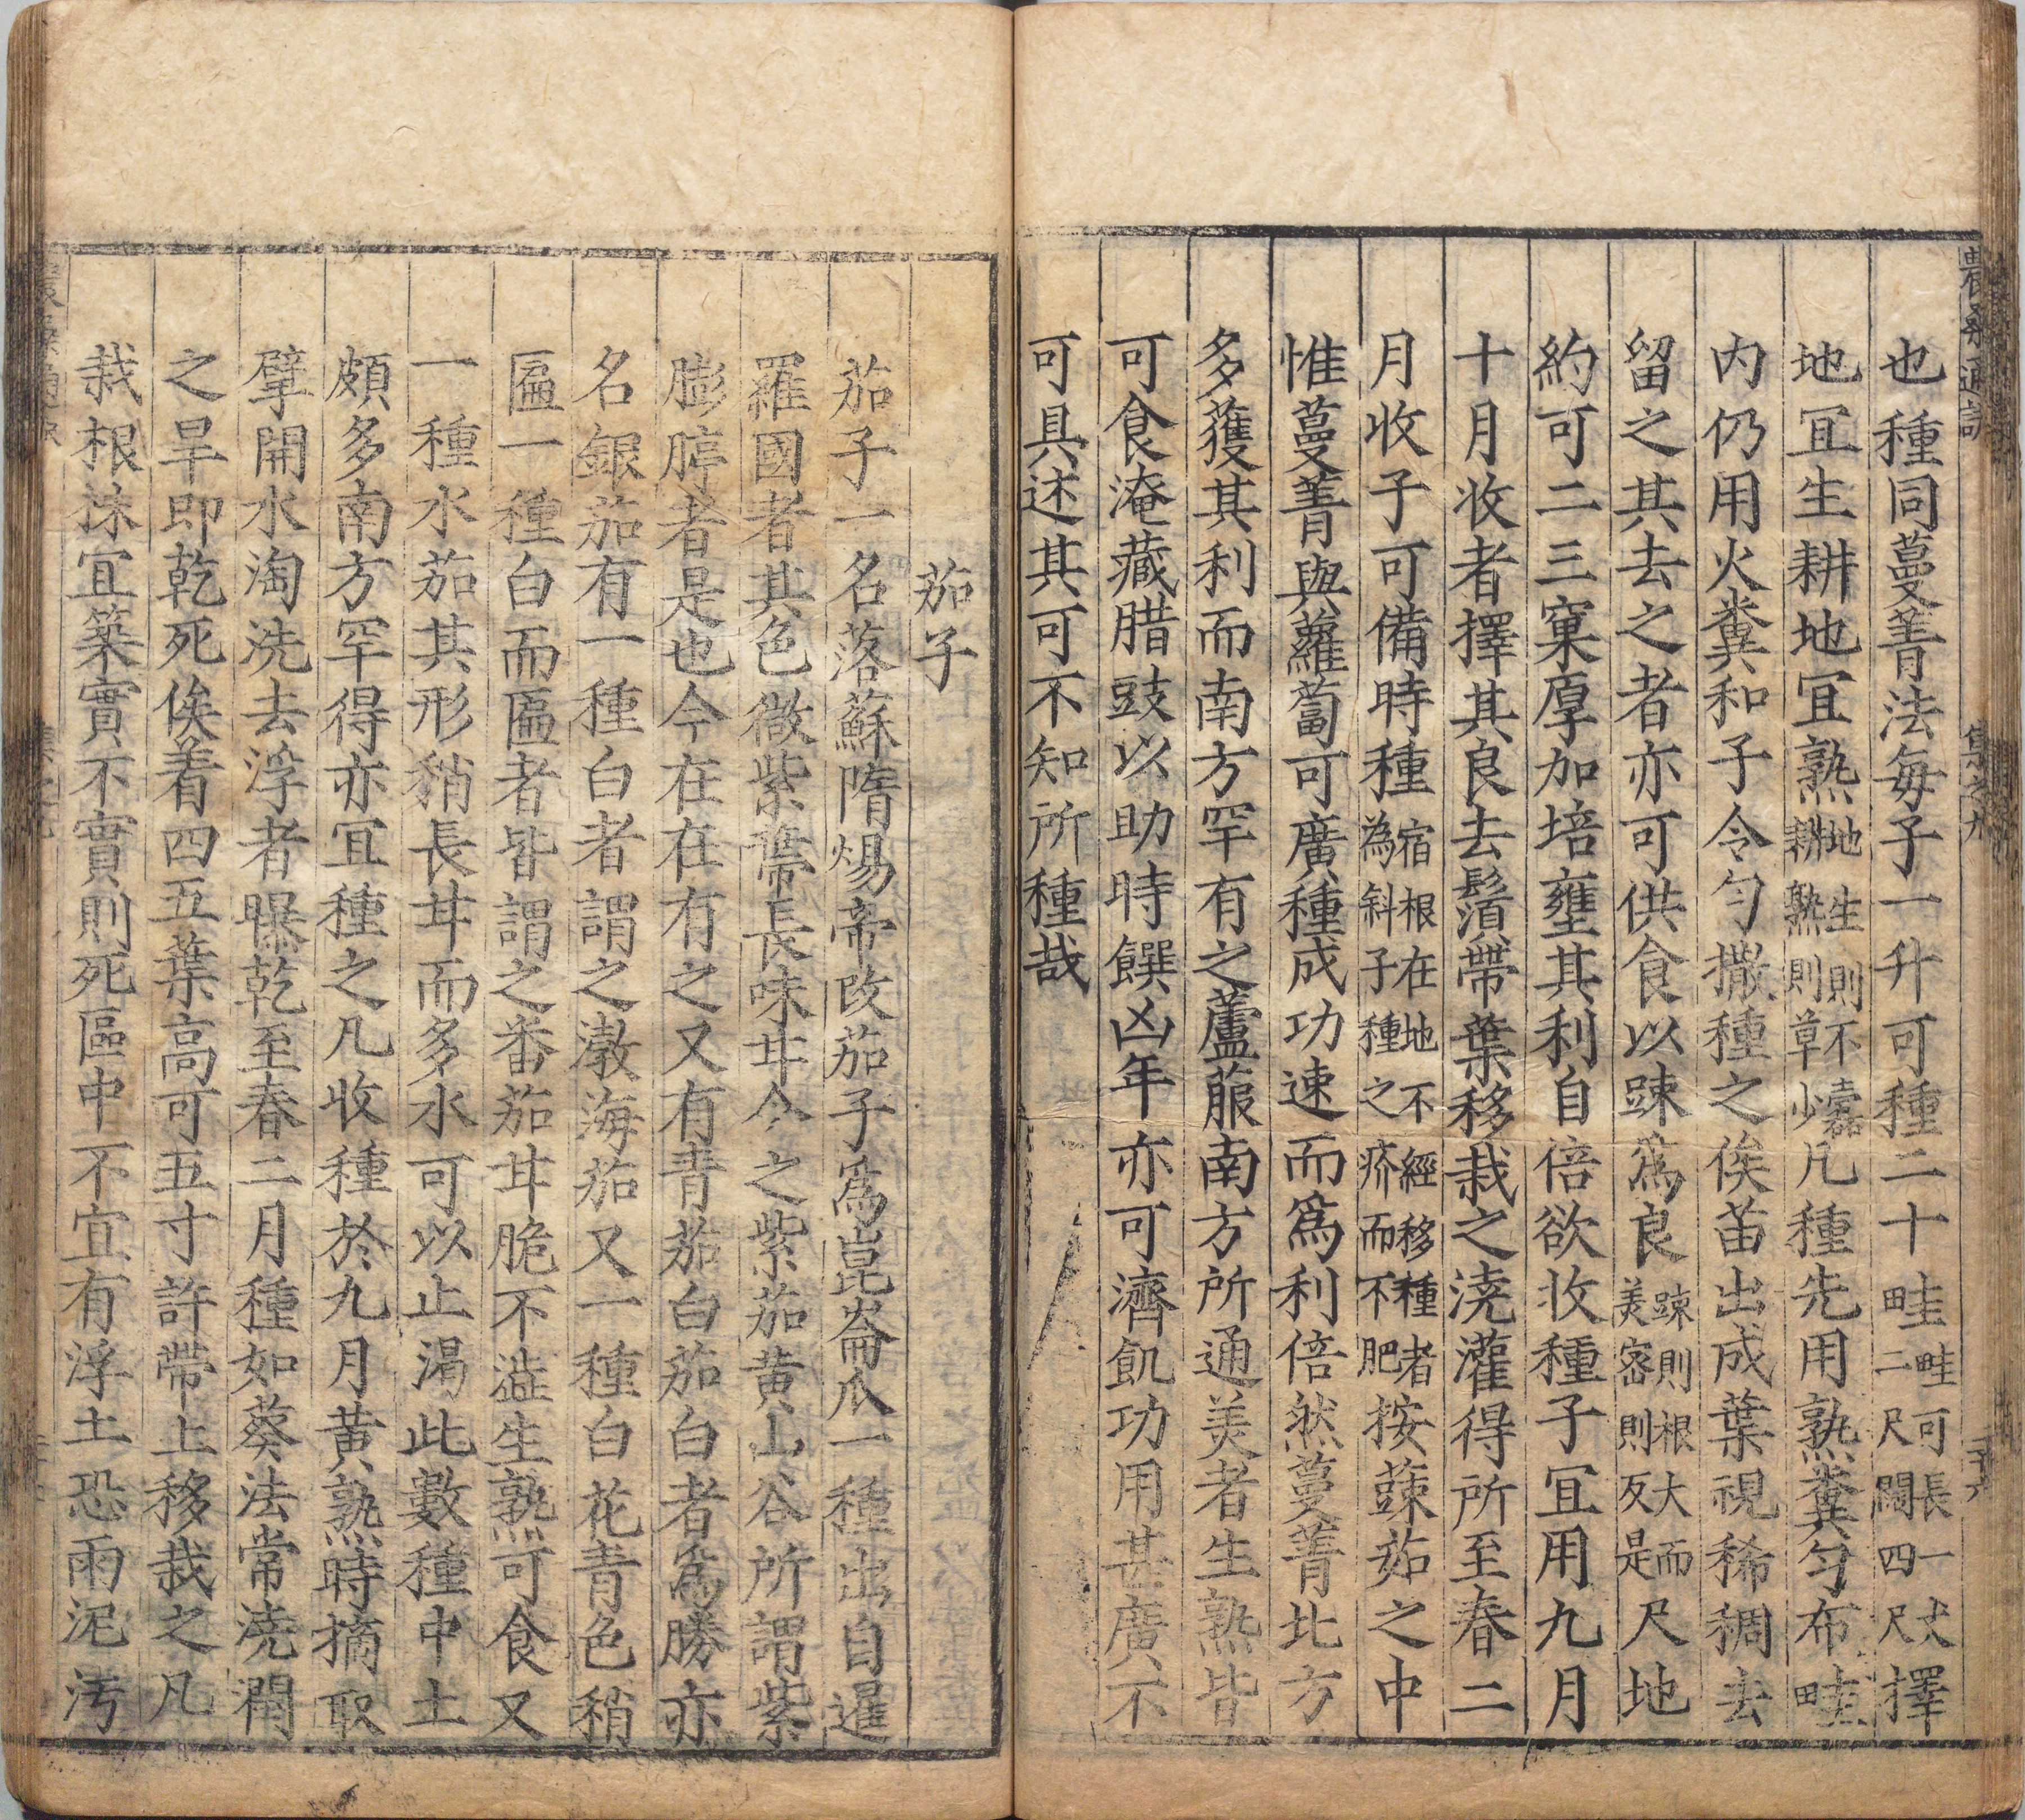 也種同蔓菁法每子一升可種二十畦畦可長一丈二尺闊四尺擇
地宜生耕地宜熟地生則不蠧耕熟則草少凡種先用熟糞勻布畦
内仍用火糞和子令勻撒種之俟苗出成葉視稀稠去
留之其去之者亦可供食以踈爲良踈則根大而美密則反是尺地
約可二三窠厚加培壅其利自倍欲收種子宜用九月
十月收者擇其良去鬚帶葉移栽之澆灌得所至春二
月收子可備時種宿根在地不經移種者為斜子種之疥而不肥按蔬茹之中
惟蔓菁與蘿蔔可廣種成功速而爲利倍然蔓菁北方
多獲其利而南方罕有之蘆菔南方所通美者生熟皆
可食淹藏腊豉以助時饌凶年亦可濟飢功用甚廣不
可具述其可不知所種哉
茄子
茄子一名落蘇隋煬帝改茄子爲崑崙瓜一種出自暹
羅國者其色微紫蔕長味甘今之紫茄黄山谷所謂紫
膨脝者是也今在在有之又有青茄白茄白者爲勝亦
名銀茄有一種白者謂之渤海茄又一種白花青色稍
匾一種白而匾者皆謂之番茄甘脆不澁生熟可食又
一種水茄其形稍長甘而多水可以止渴此數種中土
頗多南方罕得亦宜種之凡收種於九月黄熟時摘取
擘開水淘洗去浮者曝乾至春二月種如葵法常澆潤
之旱即乾死俟着四五葉高可五寸許帶土移栽之凡
栽根株宜築實不實則死區中不宜有浮土恐雨泥汚
農桑通訣
集之九